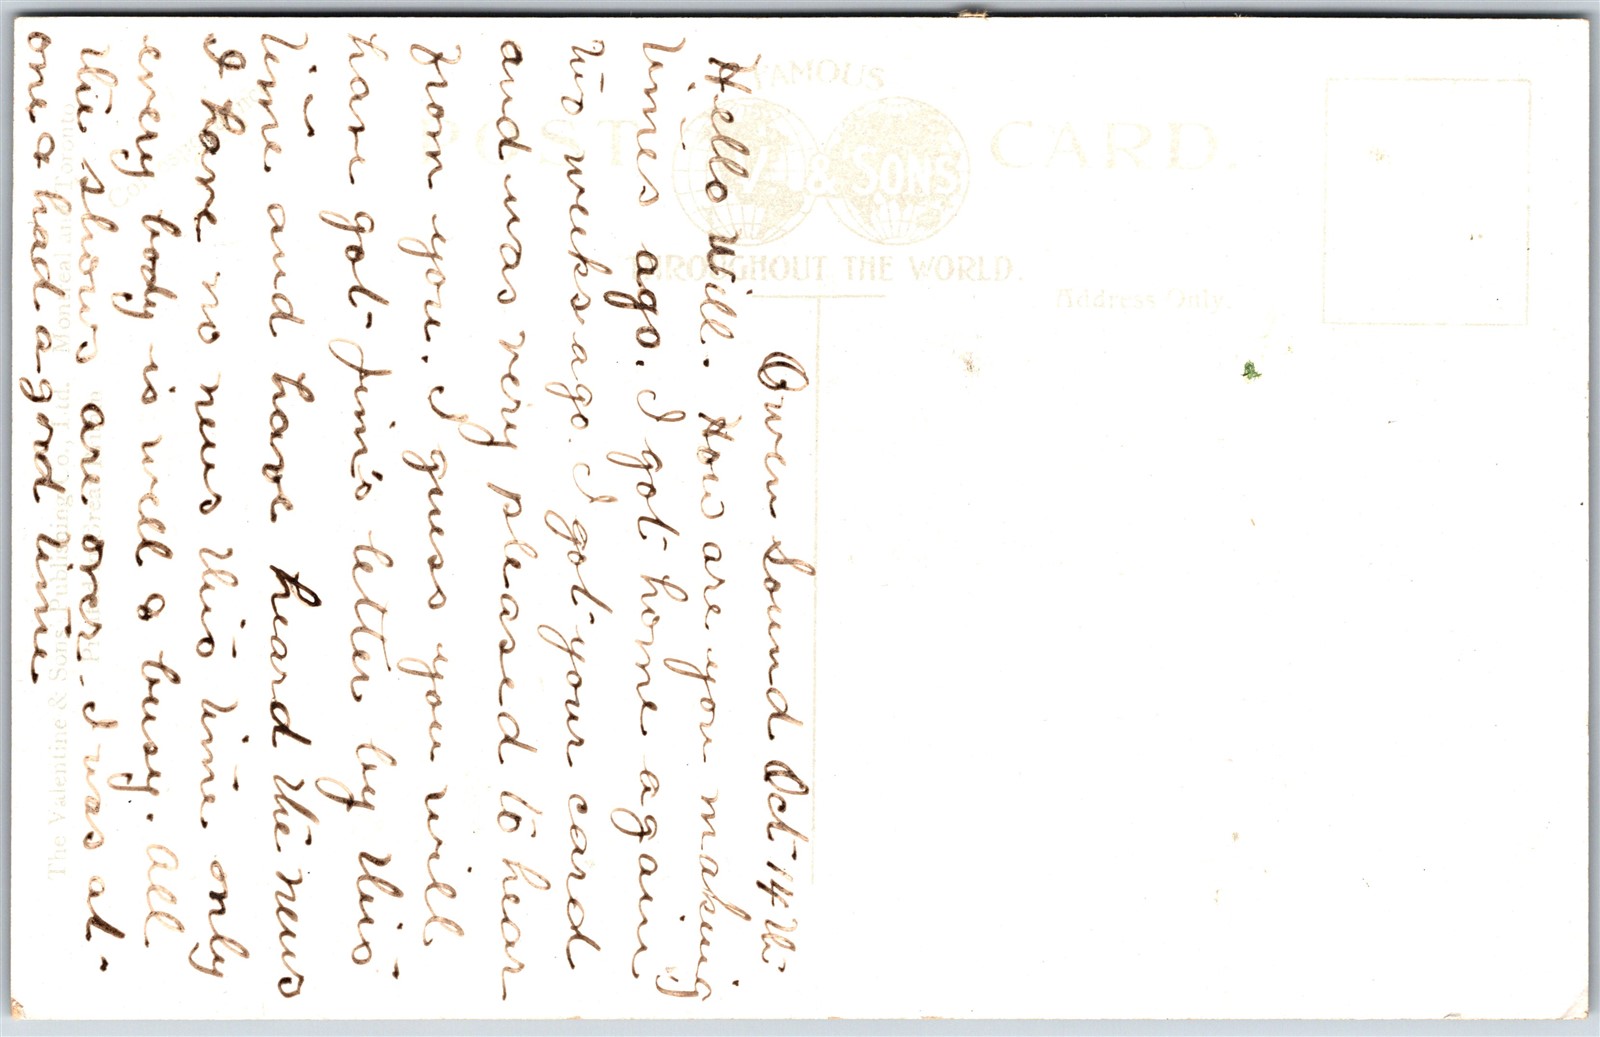 FAMOUS
POST CARD.
& SONS
THROUGHOUT THE WORLD.
Address Only.
Owen Sound Oct 14th
Hello Will. How are you making
times ago. I got home again
two weeks ago. I got your card
and was very pleased to hear
from you. I guess you will
have got Jim's letter by this
time and have heard the news
I have no news this time only
every body is well & busy. All
the shows are over. I was at
one & had a good time
The Valentine & Sons Publishing Co., Ltd. Montreal and Toronto
Printed in Great Britain